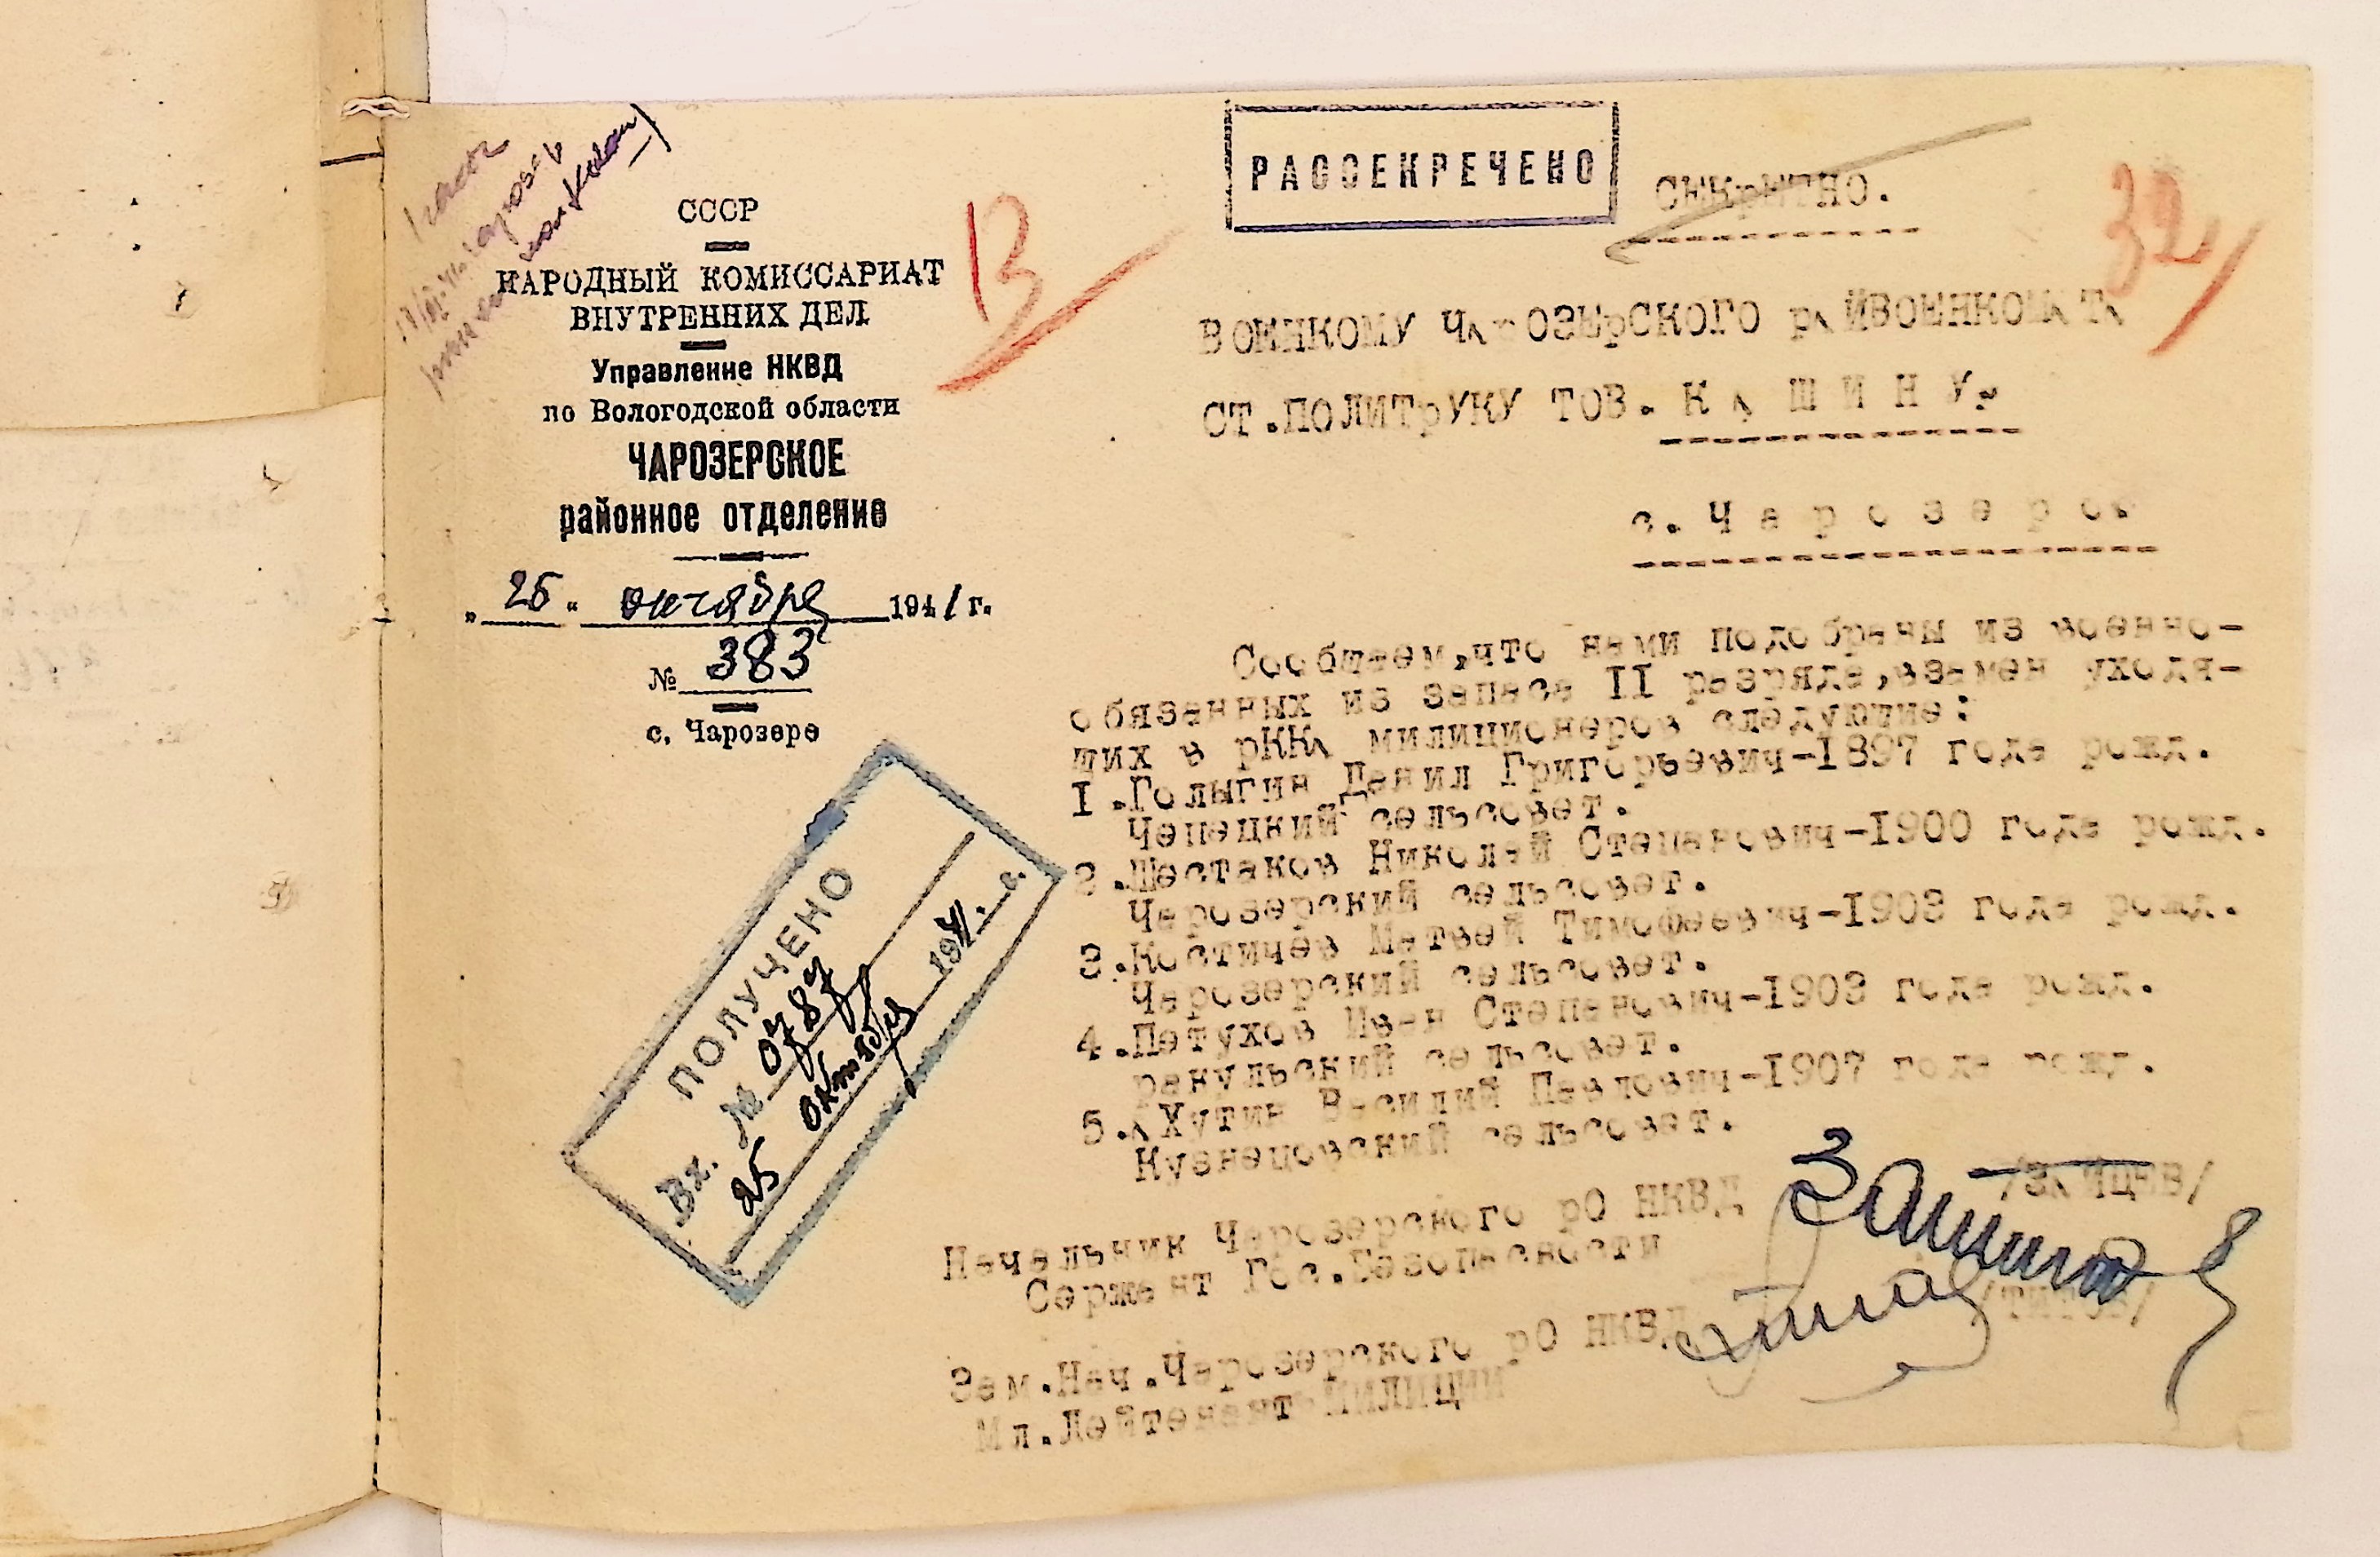 СССР
НАРОДНЫЙ КОМИССАРИАТ
ВНУТРЕННИХ ДЕЛ
Управление НКВД
по Вологодской области
ЧАРОЗЕРСКОЕ
районное отделение
„25“ октября 1941 г.
№ 383
с. Чарозеро
13
РАССЕКРЕЧЕНО
СЕКРЕТНО.
32
ВОЕНКОМУ ЧАРОЗЕРСКОГО РАЙВОЕНКОМАТА
СТ.ПОЛИТРУКУ ТОВ. К А Ш И Н У.
с. Ч а р о з е р о.
Сообщаем,что нами подобраны из военно-
обязанных из запаса II разряда,взамен уходя-
щих в РККА милиционеров следующие:
1.Голыгин Данил Григорьевич-1897 года рожд.
Чепецкий сельсовет.
2.Шестаков Николай Степанович-1900 года рожд.
Чарозерский сельсовет.
3.Костичев Матвей Тимофеевич-1903 года рожд.
Чарозерский сельсовет.
4.Петухов Иван Степанович-1903 года рожд.
Ракульский сельсовет.
5.Хутин Василий Павлович-1907 года рожд.
Кузнецовский сельсовет.
Начальник Чарозерского РО НКВД
Сержант Гос.Безопасности
/ЗАЙЦЕВ/
Зам.Нач.Чарозерского РО НКВД
Мл.Лейтенант Милиции
/ТИТОВ/
ПОЛУЧЕНО
Вх. № 0787
25 октября 1941 г.